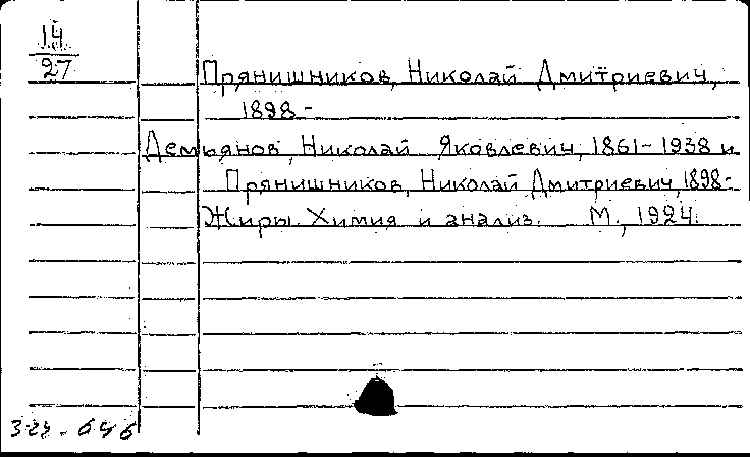 14
27
Прянишников, Николай Дмитриевич,
1898-
Демьянов, Николай Яковлевич, 1861-1938 и
Прянишников, Николай Дмитриевич, 1898-
Жиры. Химия и анализ. М., 1924.